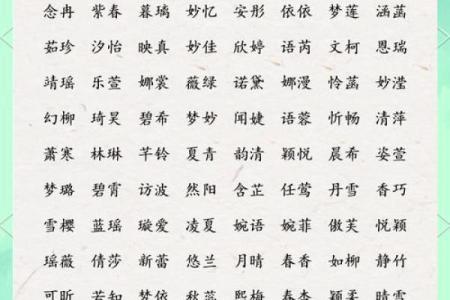 念冉 紫春 暮璃 妙忆 安彤 依依 梦莲 涵菡
茹珍 汐怡 映真 妙佳 欣婷 语芮 文柯 恩瑞
靖瑶 乐萱 娜裳 薇绿 诺黛 娜漫 怜菡 妙滢
幻柳 琦昊 碧希 梦妙 闻婕 语蓉 忻畅 清萍
萧寒 林琳 芊铃 夏青 韵清 颖悦 晨希 姿萱
梦璐 碧霄 访波 然阳 含芷 任莺 丹雪 香巧
雪樱 蓝瑶 璇爱 凌夏 婉语 婉菲 傲芙 悦颖
瑶薇 倩莎 新蕾 悠兰 月晴 春香 如柳 静竹
可昕 若知 梦依 秋蕊 熙梅 春冬 新柔 晴雪